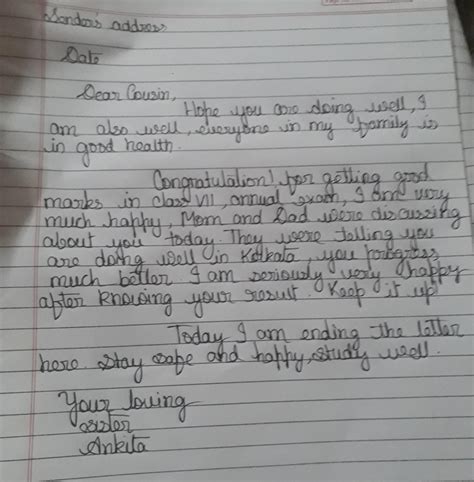 Sender's address
Date
Dear Cousin,
Hope you are doing well, I
am also well, everyone in my family is
in good health.
Congratulation! for getting good
marks in class VII, annual exam, I am very
much happy, Mom and Dad were discussing
about you today. They were telling you
are doing well in Kolkata, you progress
much better. I am seriously very happy
after knowing your result. Keep it up!
Today I am ending the letter
here. Stay safe and happy, study well.
Your loving
sister
Ankita